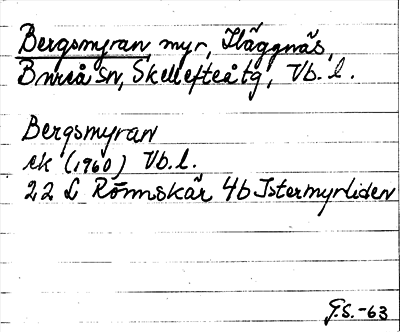 Bergsmyran, myr, Häggnäs,
Bureå sn, Skellefteå tg, Vb. l.
Bergsmyran
ek (1960) Vb. l.
22 L Rönnskär 4b Istermyrliden
G.S.-63